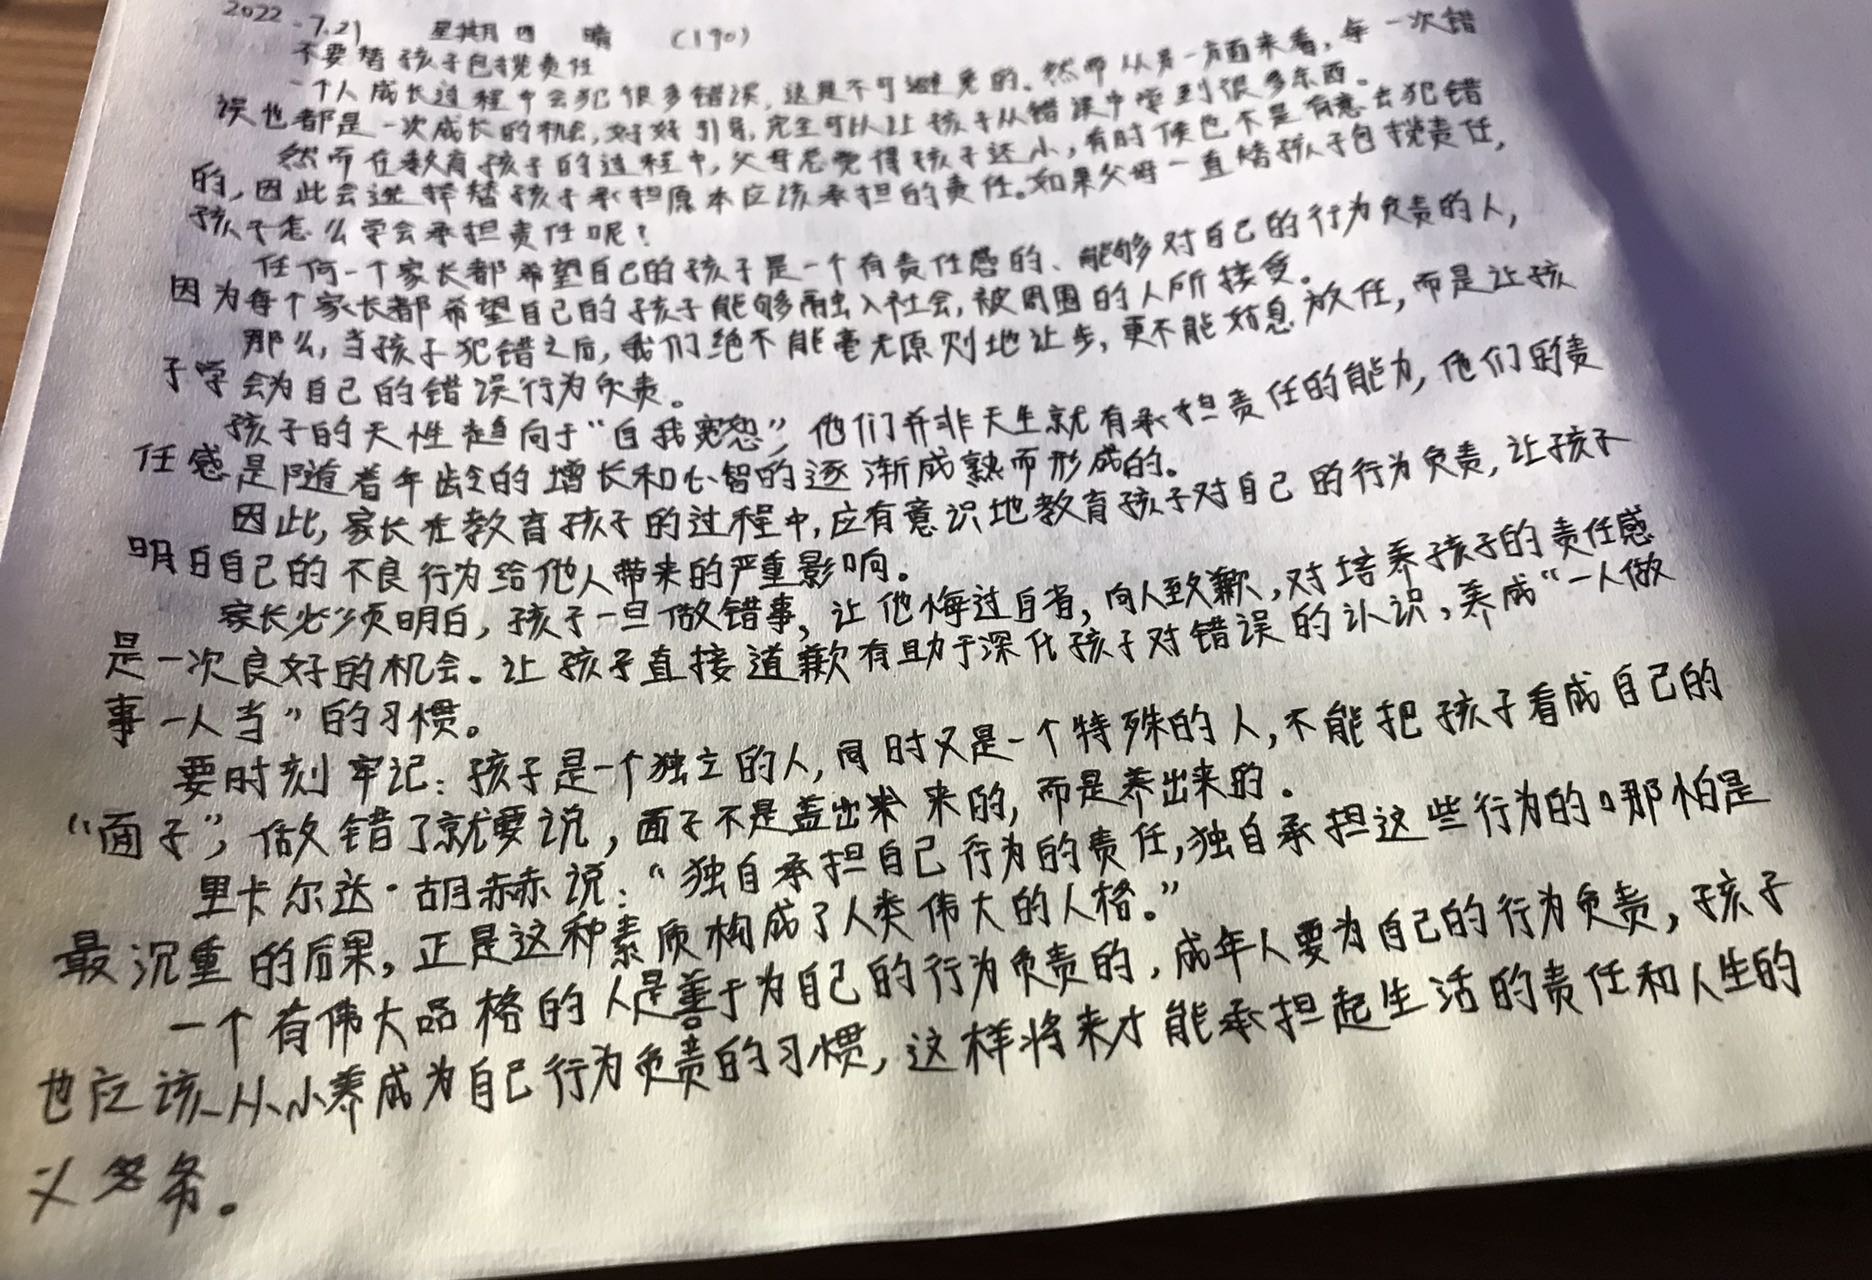 2022.7.21 星期四 晴 (190)
不要替孩子包揽责任
一个人成长过程中会犯很多错误,这是不可避免的。然而从另一方面来看,每一次错
误也都是一次成长的机会,好好引导,完全可以让孩子从错误中学到很多东西。
然而在教育孩子的过程中,父母总觉得孩子还小,有时候也不是有意去犯错
的,因此会选择替孩子承担原本应该承担的责任。如果父母一直替孩子包揽责任,
孩子怎么学会承担责任呢?
任何一个家长都希望自己的孩子是一个有责任感的、能够对自己的行为负责的人,
因为每个家长都希望自己的孩子能够融入社会,被周围的人所接受。
那么,当孩子犯错之后,我们绝不能毫无原则地让步,更不能姑息放任,而是让孩
子学会为自己的错误行为负责。
孩子的天性趋向于“自我宽恕”,他们并非天生就有承担责任的能力,他们的责
任感是随着年龄的增长和心智的逐渐成熟而形成的。
因此,家长在教育孩子的过程中,应有意识地教育孩子对自己的行为负责,让孩子
明白自己的不良行为给他人带来的严重影响。
家长必须明白,孩子一旦做错事,让他悔过自省,向人致歉,对培养孩子的责任感
是一次良好的机会。让孩子直接道歉有助于深化孩子对错误的认识,养成“一人做
事一人当”的习惯。
要时刻牢记:孩子是一个独立的人,同时又是一个特殊的人,不能把孩子看成自己的
“面子”,做错了就要说,面子不是盖出来的,而是养出来的。
里卡尔达·胡赫说:“独自承担自己行为的责任,独自承担这些行为的。哪怕是
最沉重的后果,正是这种素质构成了人类伟大的人格。”
一个有伟大品格的人是善于为自己的行为负责的,成年人要为自己的行为负责,孩子
也应该从小养成为自己行为负责的习惯,这样将来才能承担起生活的责任和人生的
义务。